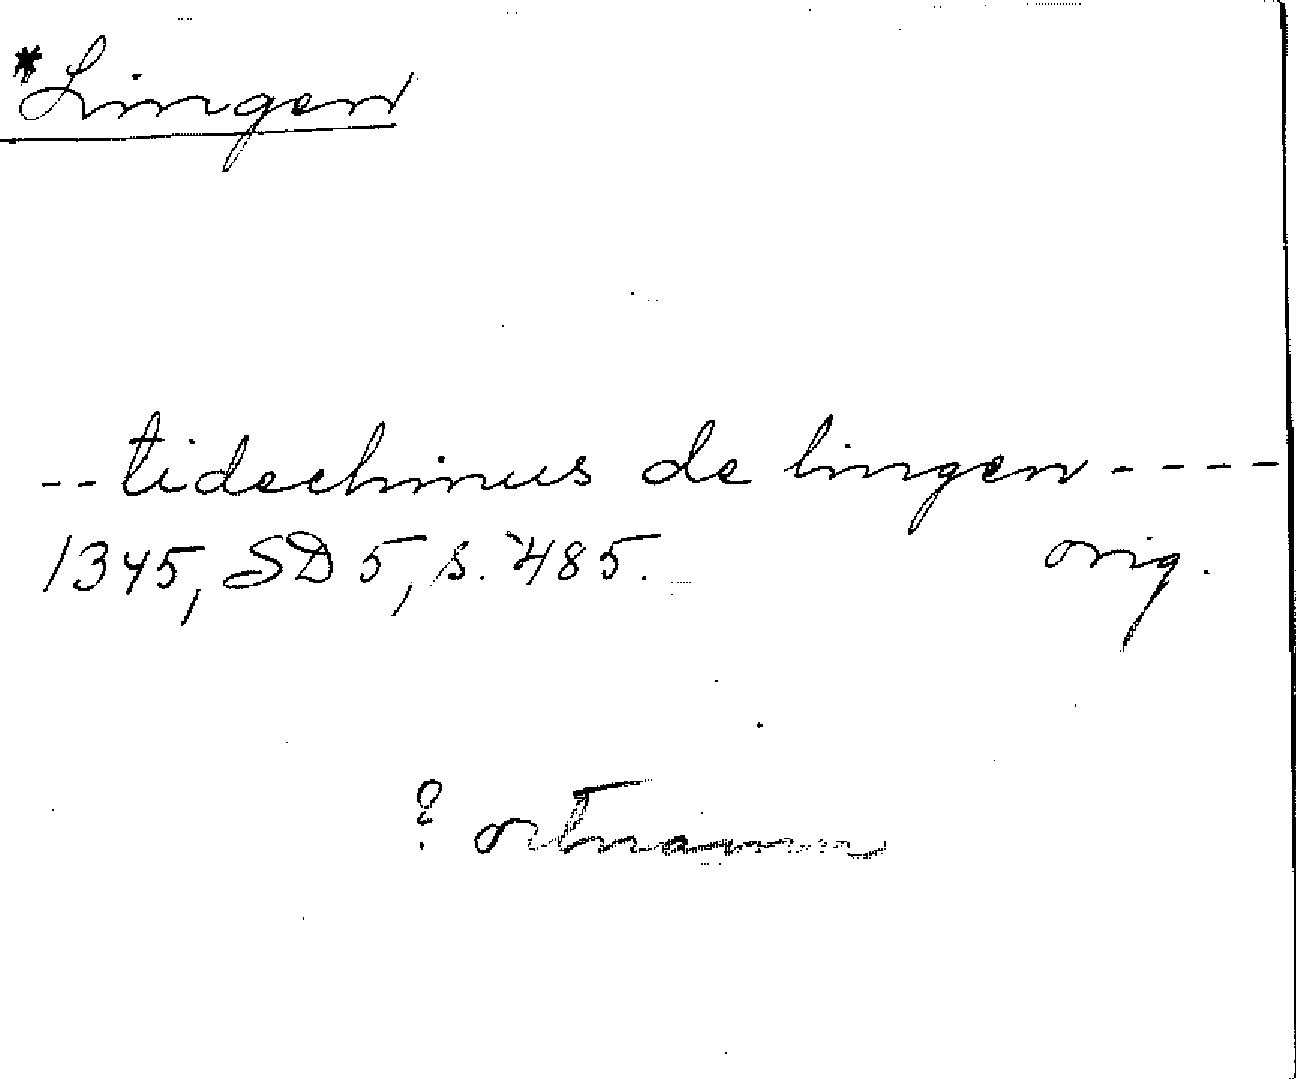 *Lingen
--tidechinus de lingen----
1345, SD 5, s. 485. orig.
? ortnamn